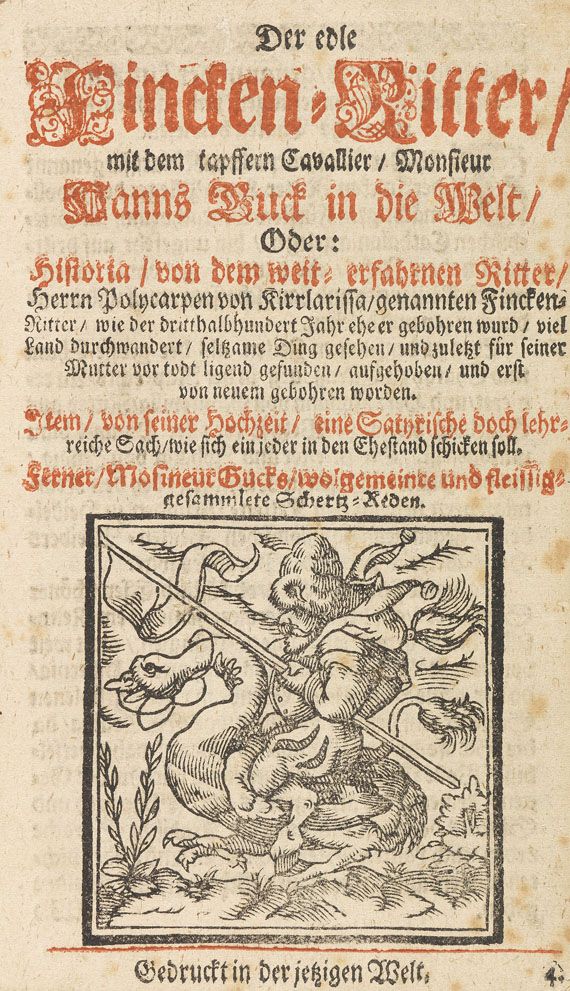 Der edle
Fincken-Ritter/
mit dem tapffern Cavallier/ Monsieur
Hanns Guck in die Welt/
Oder:
Historia/ von dem weit- erfahrnen Ritter/
Herrn Polycarpen von Kirrlarissa/genannten Fincken-
Ritter/ wie der dritthalbhundert Jahr ehe er gebohren wurd/ viel
Land durchwandert/ seltzame Ding gesehen/ und zuletzt für seiner
Mutter vor todt ligend gefunden/ aufgehoben/ und erst
von neuem gebohren worden.
Item/ von seiner Hochzeit/ eine Satyrische doch lehr-
reiche Sach/wie sich ein jeder in den Ehestand schicken soll.
Ferner/Mosineur Gucks/wolgemeinte und fleissig-
gesammlete Schertz-Reden.
Gedruckt in der jetzigen Welt.
4.